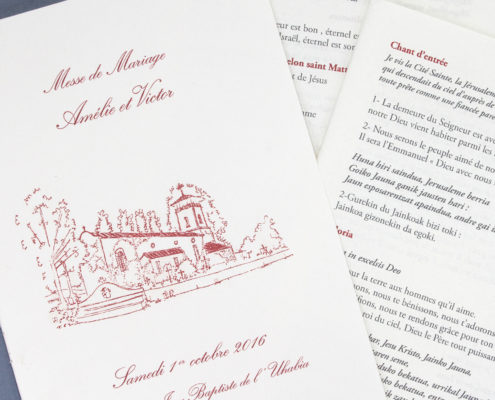 Messe de Mariage
Amélie et Victor
Samedi 1er octobre 2016
Baptiste de l'Uhabia
eur est bon , éternel e
Israël, éternel est so
elon saint Mat
t de Jésus
mme
Chant d'entrée
Je vis la Cité Sainte, la Jérusalem
qui descendait du ciel d'auprès de
toute prête comme une fiancée par
1- La demeure du Seigneur est avec
notre Dieu vient habiter parmi les
2- Nous serons le peuple aimé de no
Il sera l'Emmanuel « Dieu avec nous
Huna hiri saindua, Jerusaleme berria
Goiko Jauna ganik jausten hari :
Jaun esposarentzat apaindua, andre gai
2-Gurekin du Jainkoak bizi toki :
Jainkoa gizonekin da egoki.
oria
a in excelsis Deo
ur la terre aux hommes qu'il aime.
ns, nous te bénissons, nous t'adorons
ons, nous te rendons grâce pour ton
roi du ciel, Dieu le Père tout puissan
bar, Jesu Kristo, Jainko Jauna,
aren seme,
nduko bekatua, urrikal
duko bekatua, entzun